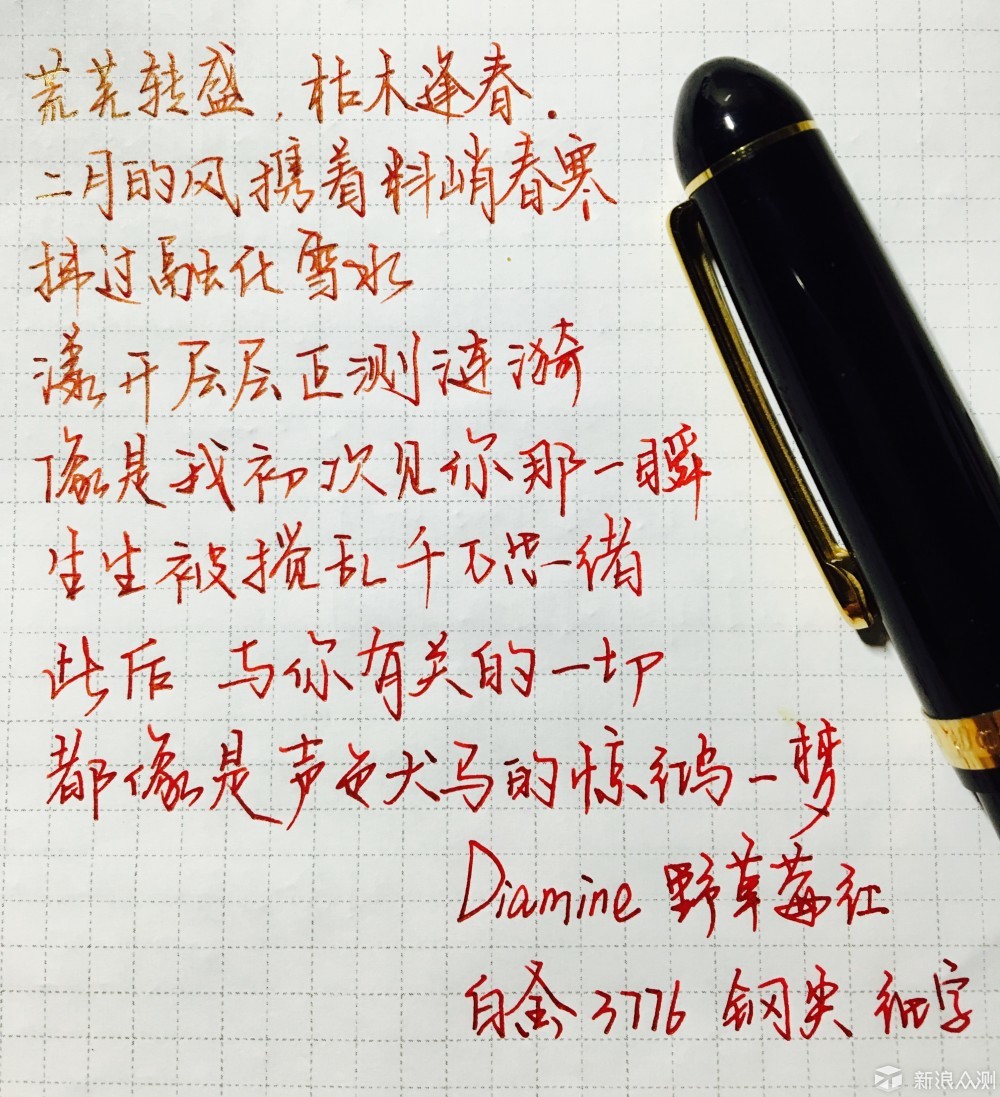 荒芜转盛，枯木逢春.
二月的风携着料峭春寒
拂过融化雪水
漾开层层叵测涟漪
像是我初次见你那一瞬
生生被搅乱千万思绪
此后 与你有关的一切
都像是声色犬马的惊鸿一梦
Diamine 野草莓红
白金3776 钢尖 细字
新浪众测